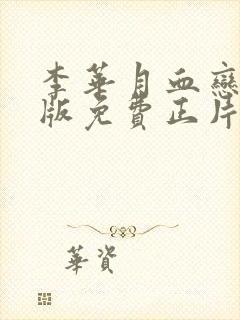 李華月血戀
版免費正片
華資